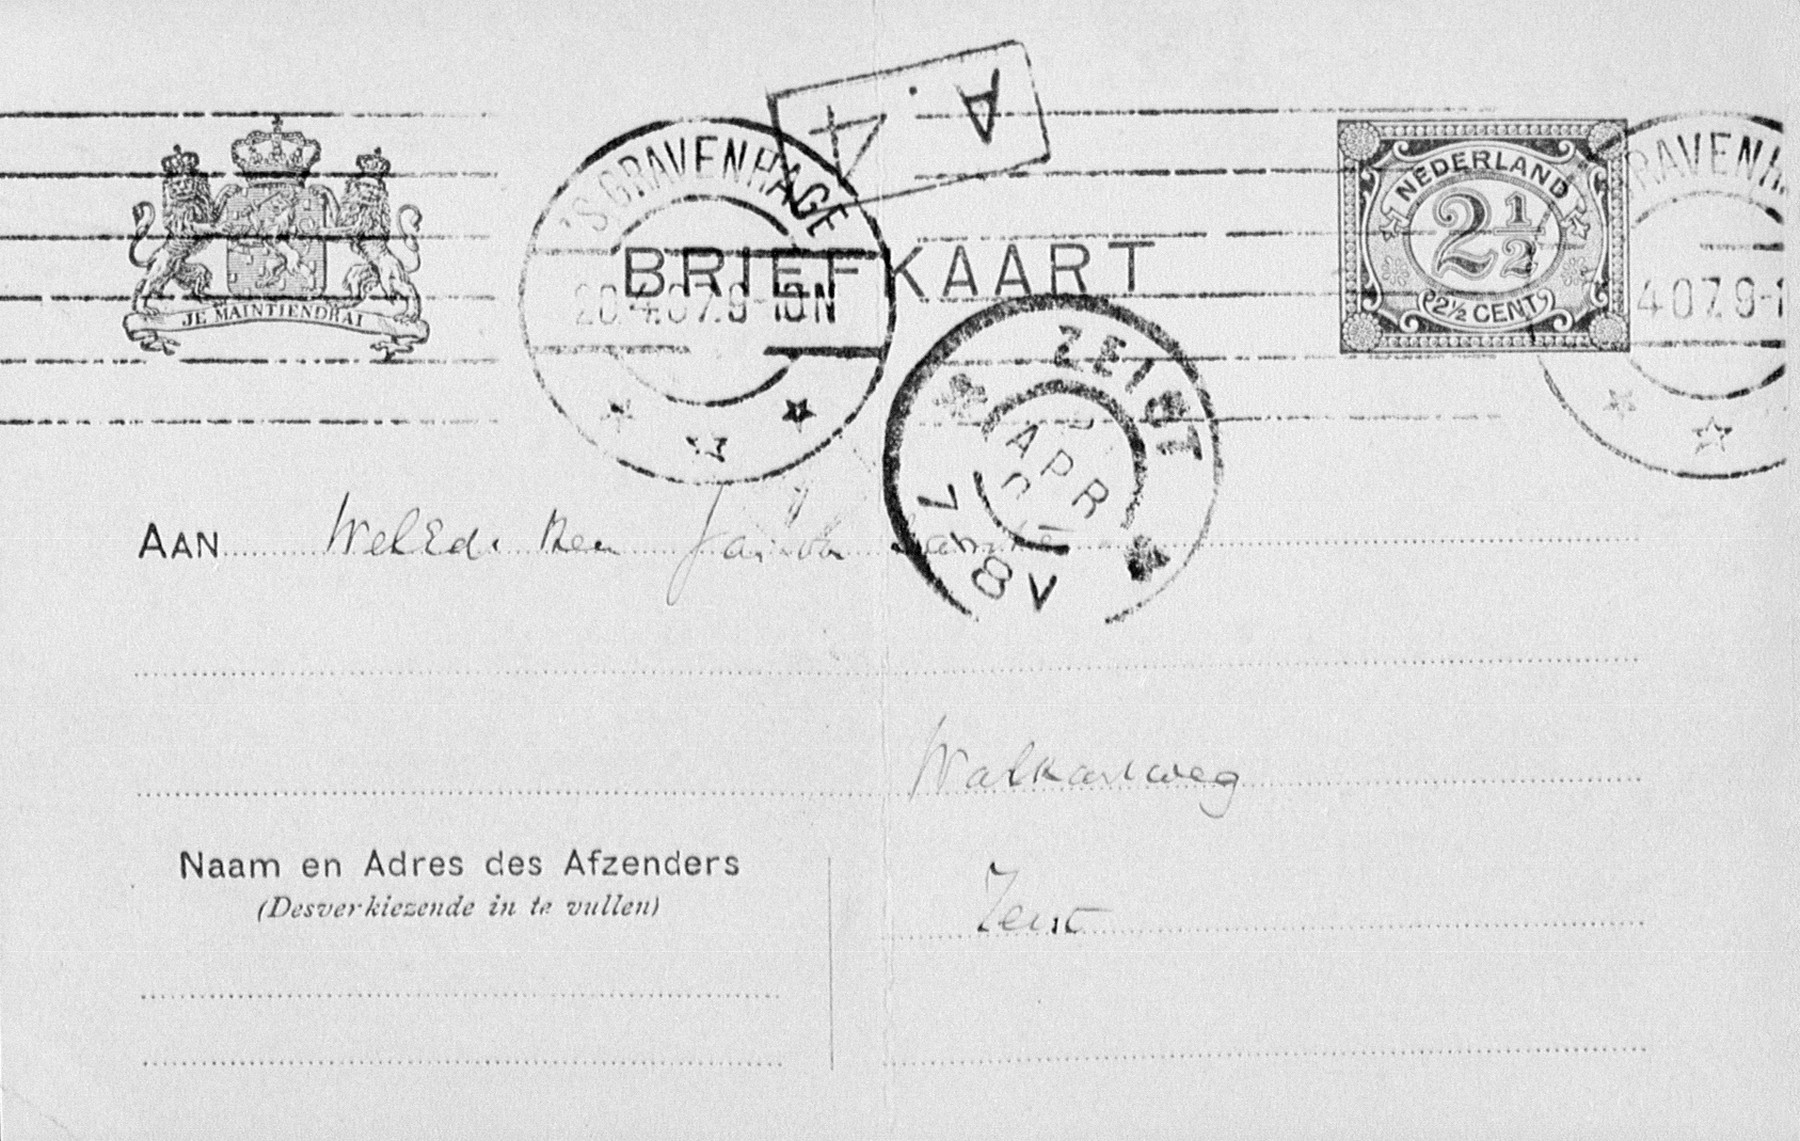 A. 4
'S GRAVENHAGE
20.4.07.9-10N
BRIEFKAART
JE MAINTIENDRAI
NEDERLAND
2½
2½ CENT
RAVENH
4 07.9-1
ZEIST
APR
7
8V
AAN WelEd. Heer
Walkartweg
Zeist
Naam en Adres des Afzenders
(Desverkiezende in te vullen)